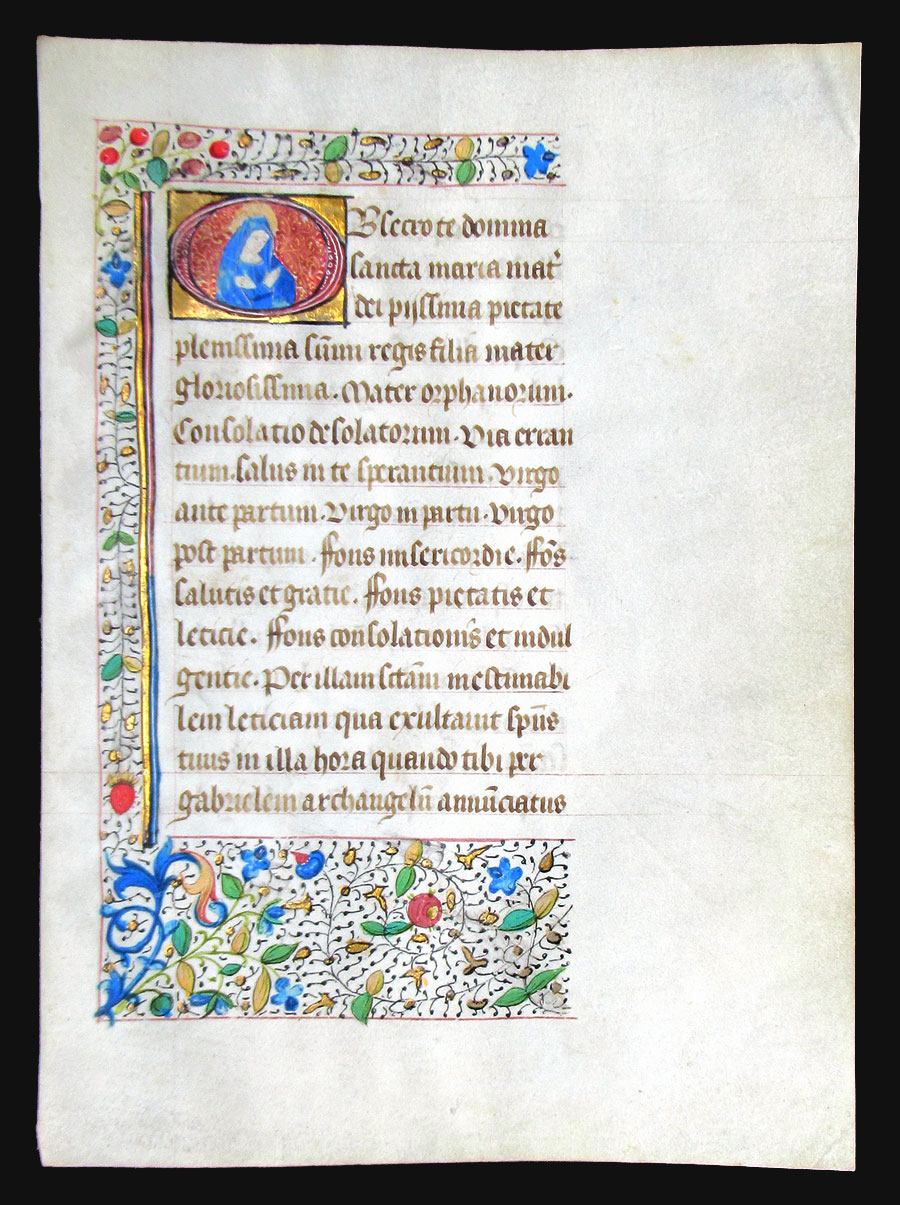 OBsecro te domina
sancta maria mat᷑
dei pijssima pietate
plenissima su̅mi regis filia mater
gloriosissima. Mater orphanorum.
Consolatio desolatorum. Via erran
tium. salus in te sperantium. Virgo
ante partum. Virgo in partu. Virgo
post partum. ffons misericordie. ffo̅s
salutis et gratie. ffons pietatis et
leticie. ffons consolationis et indul
gentie. Per illam sc̅tam inestimabi
lem leticiam qua exultauit sp̅us
tuus in illa hora quando tibi per
gabrielem archangelu̅ annu̅ciatus